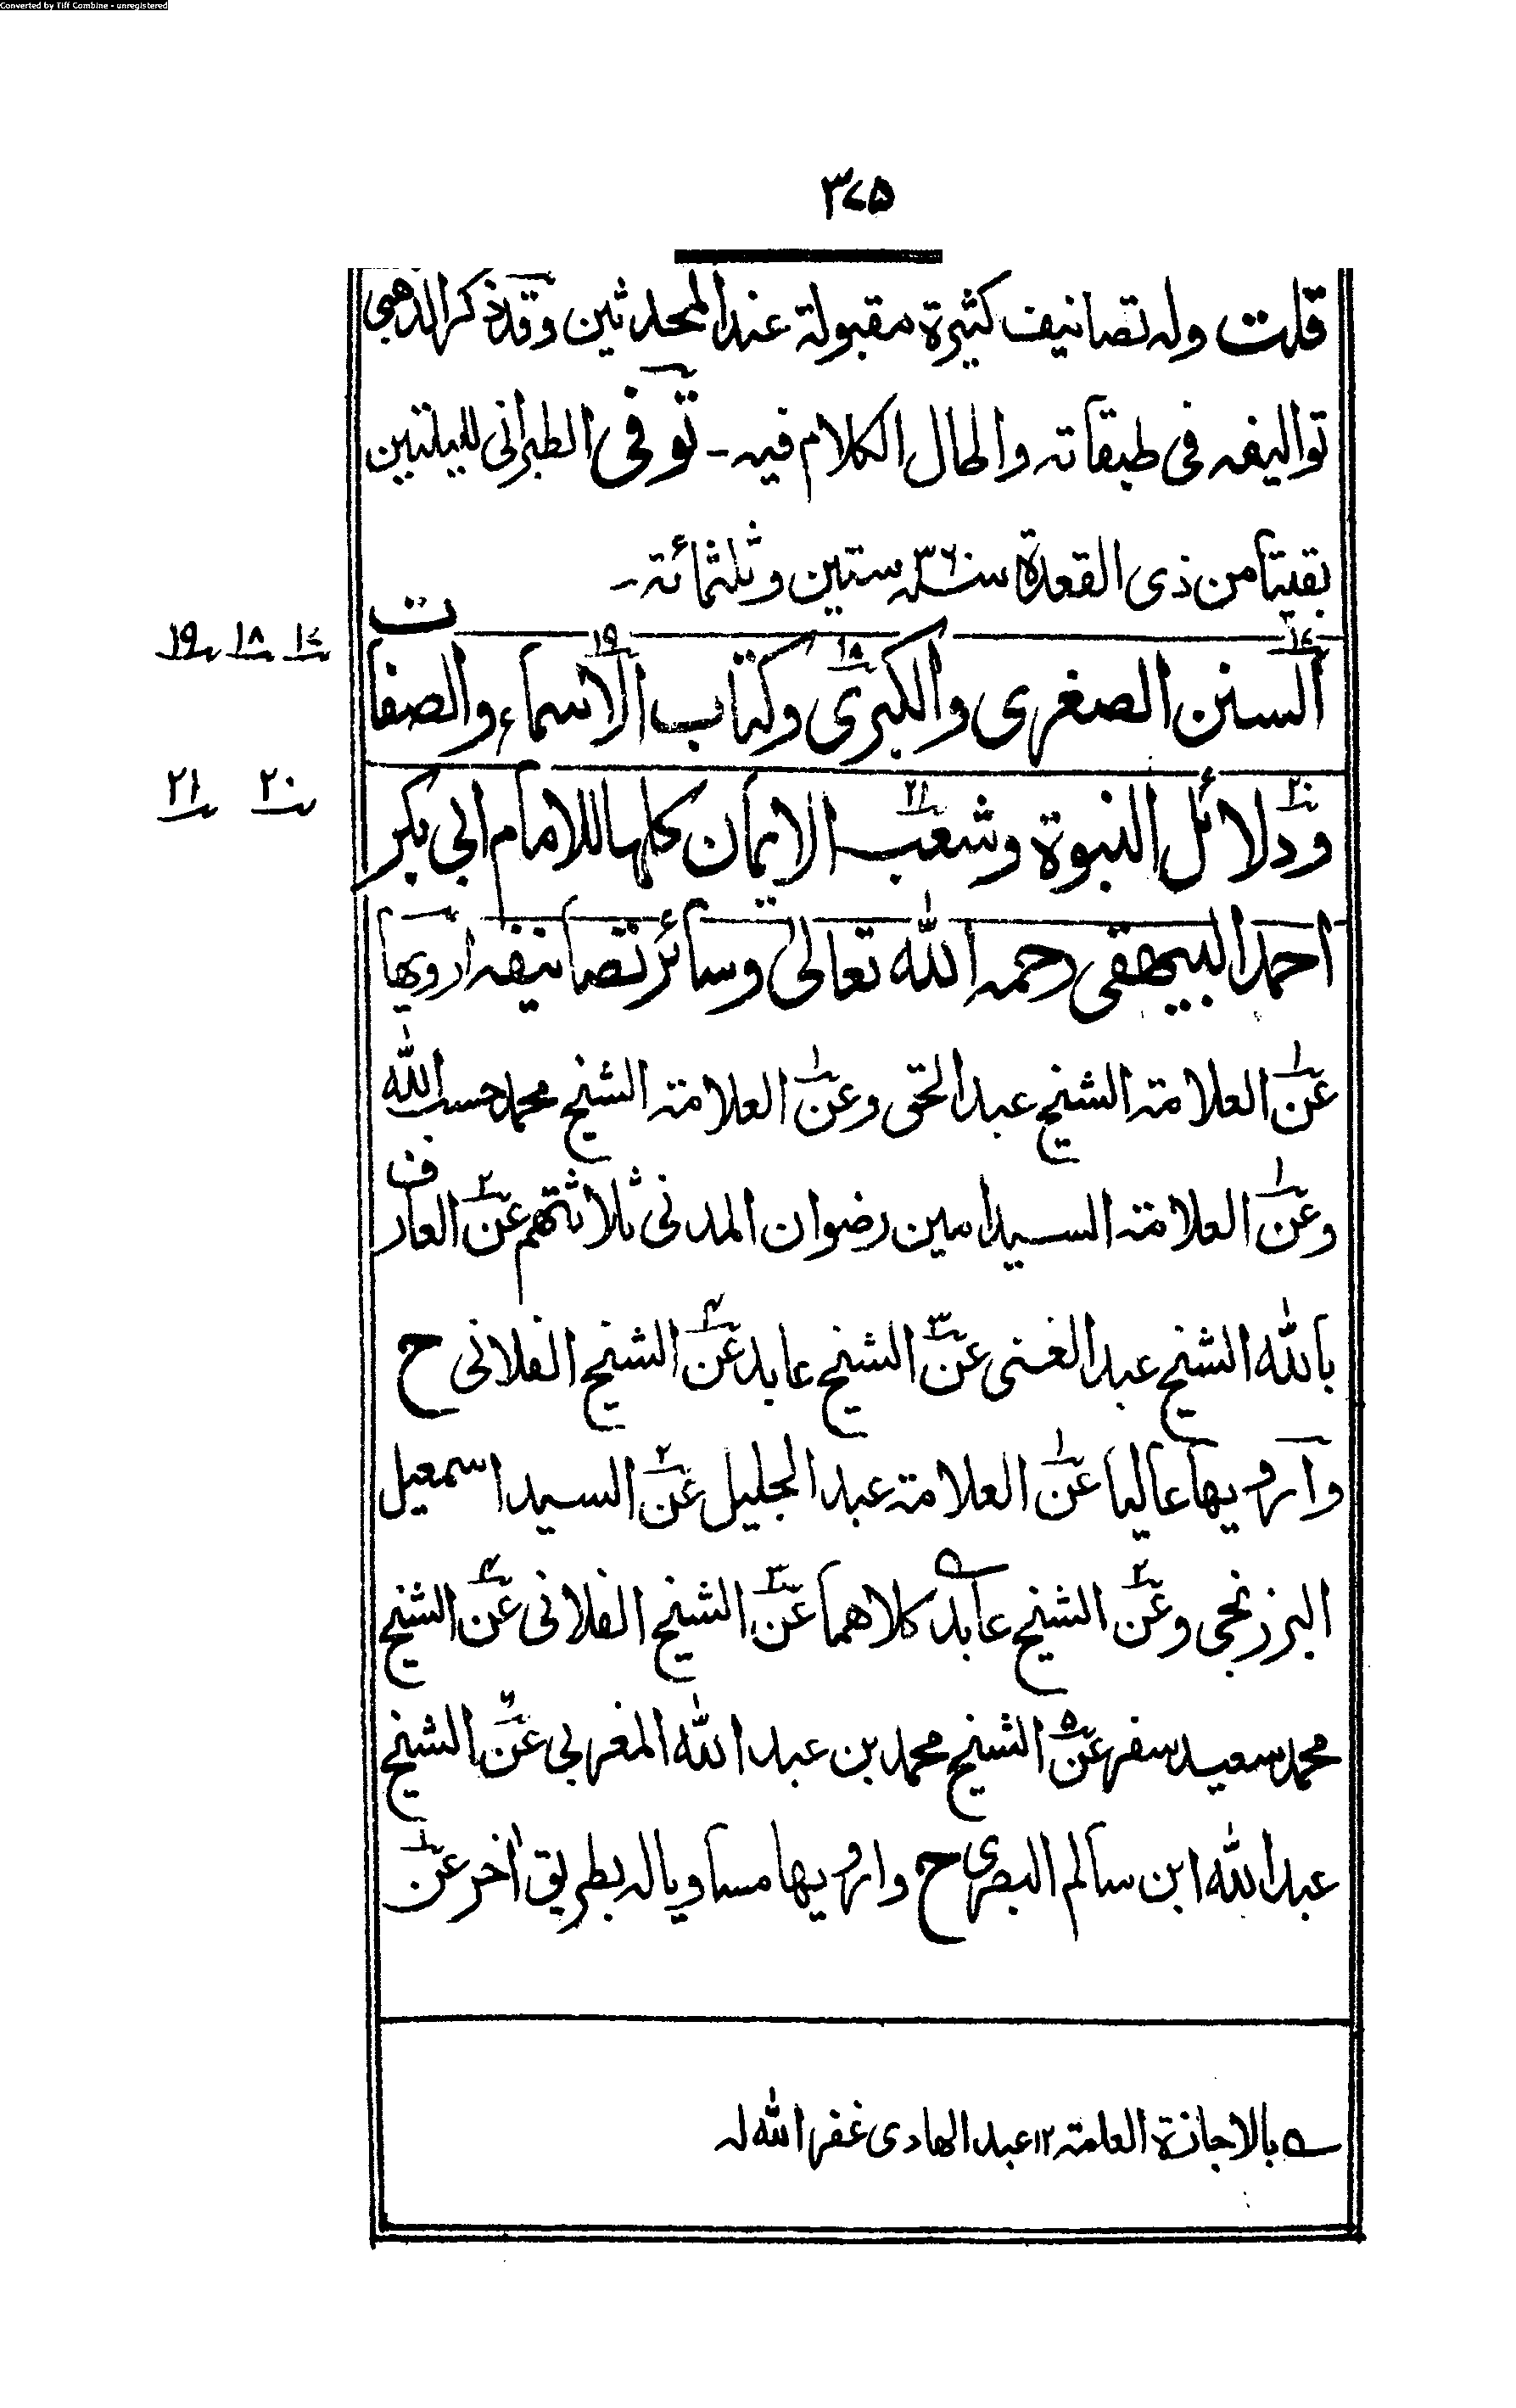 Converted by Tiff Combine - unregistered
٣٧٥
قلت وله تصانيف كثيرة مقبولة عند المحدثين وقد ذكر الذهبي
تواليفه في طبقاته واطال الكلام فيه ـ توفى الطبراني لليلتين
بقيتا من ذي القعدة سنة ٣٦٠ ستين وثلثمائة ـ
١٧ ١٨ ١٩
السنن الصغرى والكبرى وكتاب الاسماء والصفات
٢٠ ٢١
ودلائل النبوة وشعب الايمان كلها للامام ابي بكر
احمد البيهقي رحمه الله تعالى وسائر تصانيفه ارويها
عن١ العلامة الشيخ عبد الحق وعن١ العلامة الشيخ محمد حسب الله
وعن١ العلامة السيد امين رضوان المدني ثلاثتهم عن٢ العارف
بالله الشيخ عبد الغني عن٣ الشيخ عابد عن٤ الشيخ الفلاني ح
وارويها عاليا عن١ العلامة عبد الجليل عن٢ السيد اسمعيل
البرزنجي وعن٢ الشيخ عابد كلاهما عن٣ الشيخ الفلاني عن٤ الشيخ
محمد سعيد سفر عن٥ الشيخ محمد بن عبد الله المغربي عن٦ الشيخ
عبد الله ابن سالم البصري ح وارويها مساويا له بطريق اٰخر عن١
ے بالاجازة العامة ١٢ عبد الهادي غفر الله له